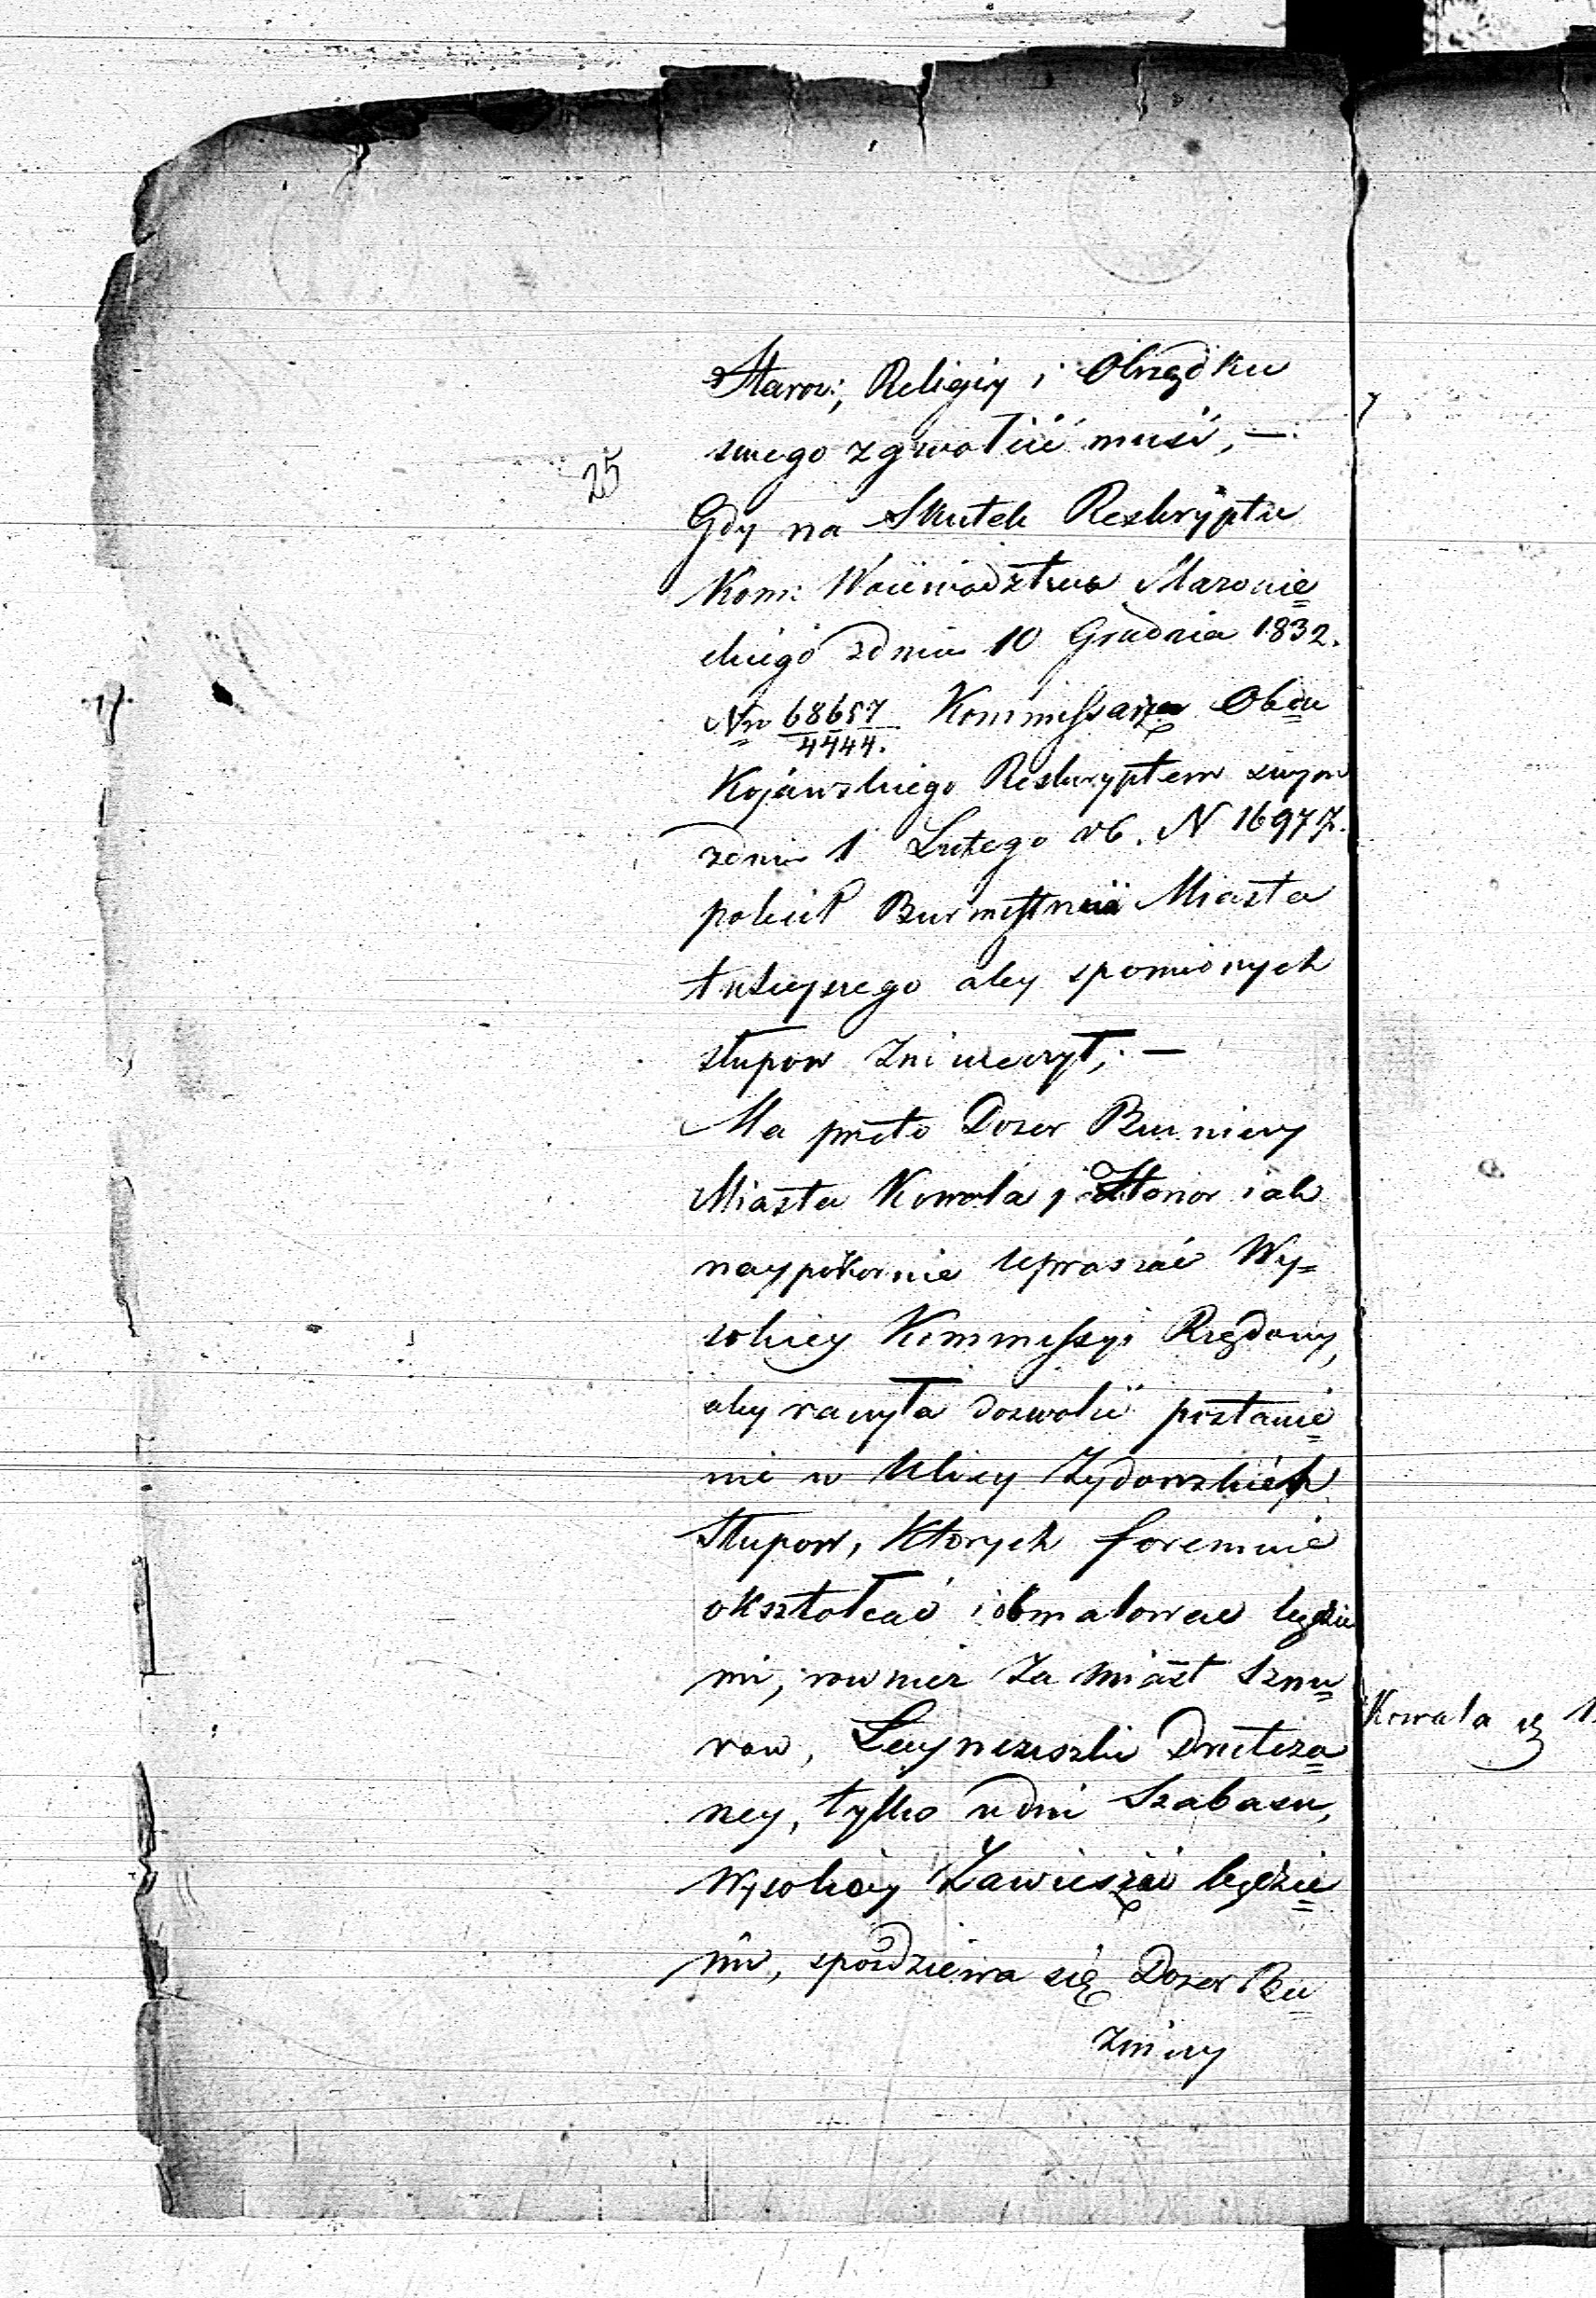 Staroz:, Religiy i Obrządku
swego zgwałcić musi, —
25
Gdy na Skutek Reskryptu
Kom: Woiewodztwa Mazowie=
ckiego zdnia 10 Grudnia 1832.
Nro 68657/4444. Kommissarz Obdu
Kojawskiego Reskryptem swym
zdnia 1 Lutego rb. N 16977.
polecił Burmistrzowi Miasta
tuteyszego aby spomnionych
słupow zniweczył, —
Ma przeto Dozor Bużniczy
Miasta Kowala Honor iak
naypokornie upraszać Wy=
sokiey Kommissyi Rządowy,
aby raczyła dozwolić postawie=
nie w Ulicy Zydowskiey
Słupow, Ktorych foremnie
okształcać i obmalowac będzie
mi, rownież Za miast Sznu=
row, Łacyneuszki Drucia=
ney, tylko w dni Szabasu,
Wysokiey Zawieszać będzie=
my, spodziewa się Dozor Bu=
żniczy
Kowala